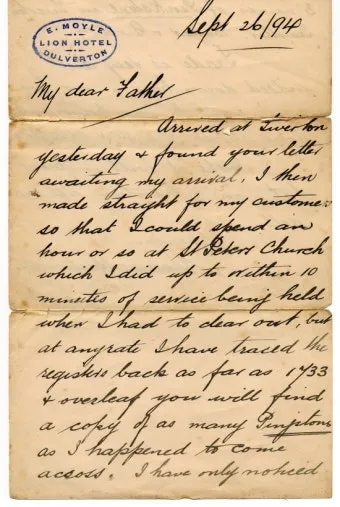 E. MOYLE
LION HOTEL
DULVERTON
Sept 26/94
My dear Father
Arrived at Tiverton
yesterday & found your letter
awaiting my arrival. I then
made straight for my customers
so that I could spend an
hour or so at St Peters Church
which I did up to within 10
minutes of service being held
when I had to clear out, but
at anyrate I have traced the
registers back as far as 1733
& overleaf you will find
a copy of as many Pinkstons
as I happened to come
across. I have only noticed